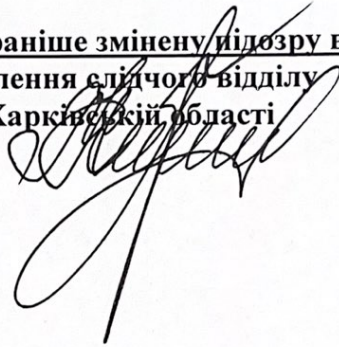 раніше змінену підозру в
лення слідчого відділу
Харківській області